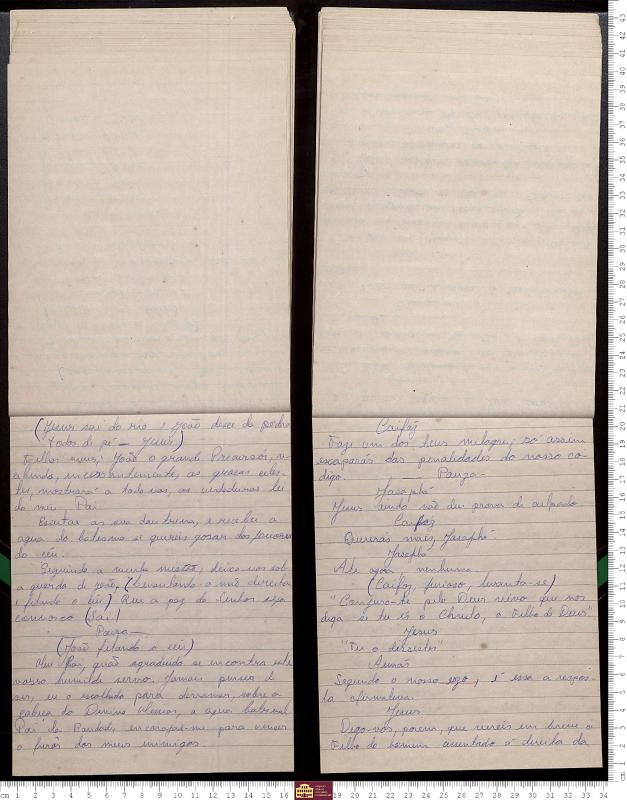 (Jesus sai do rio e João desce da pedra
Todos de pé — Jesus)
Filhos meus; João o grande Precursor,
abrindo, incessantemente, as graças celes-
tes, mostrará a todos vós, as verdadeiras lei
do meu Pai.
Escutai as sua doutrina, e recebei a
agua do batismo se quereis gosar dos
do céu.
Seguindo a minha missão, deixo-vos sob
a guarda de João. (Levantando a mão direita
e fitando o céu) Que a paz do Senhor seja
convosco (Sai)
Pauza —
(João fitando o céu)
Meu Pai, quão agradecido se encontra este
vosso humilde servo. Jamais pensei de
ser, eu o escolhido para derramar, sobre a
cabeça do Divino Messias, a agua batismal
Pai da Bondade, encorajai-me para vencer
o furôr dos meus inimigos.
Caifaz
Faze um dos teus milagres, só assim
escaparás das penalidades do nosso co-
digo. — Pauza —
Jasaphá
Jesus ainda não deu prova de culpado
Caifaz
Quererás mais, Jasaphá?
Jasaphá
Até agora nenhuma
(Caifaz, furioso, levanta-se)
"Conjuro-te pelo Deus vivo que nos
diga se tu és o Christo, o Filho de Deus"
Jesus
"Tu o dissestes"
Annás
Segundo o nosso , é essa a respos-
ta afirmativa.
Jesus
Digo-vos, porem, que vereis em breve o
Filho do homem assentado á direita da